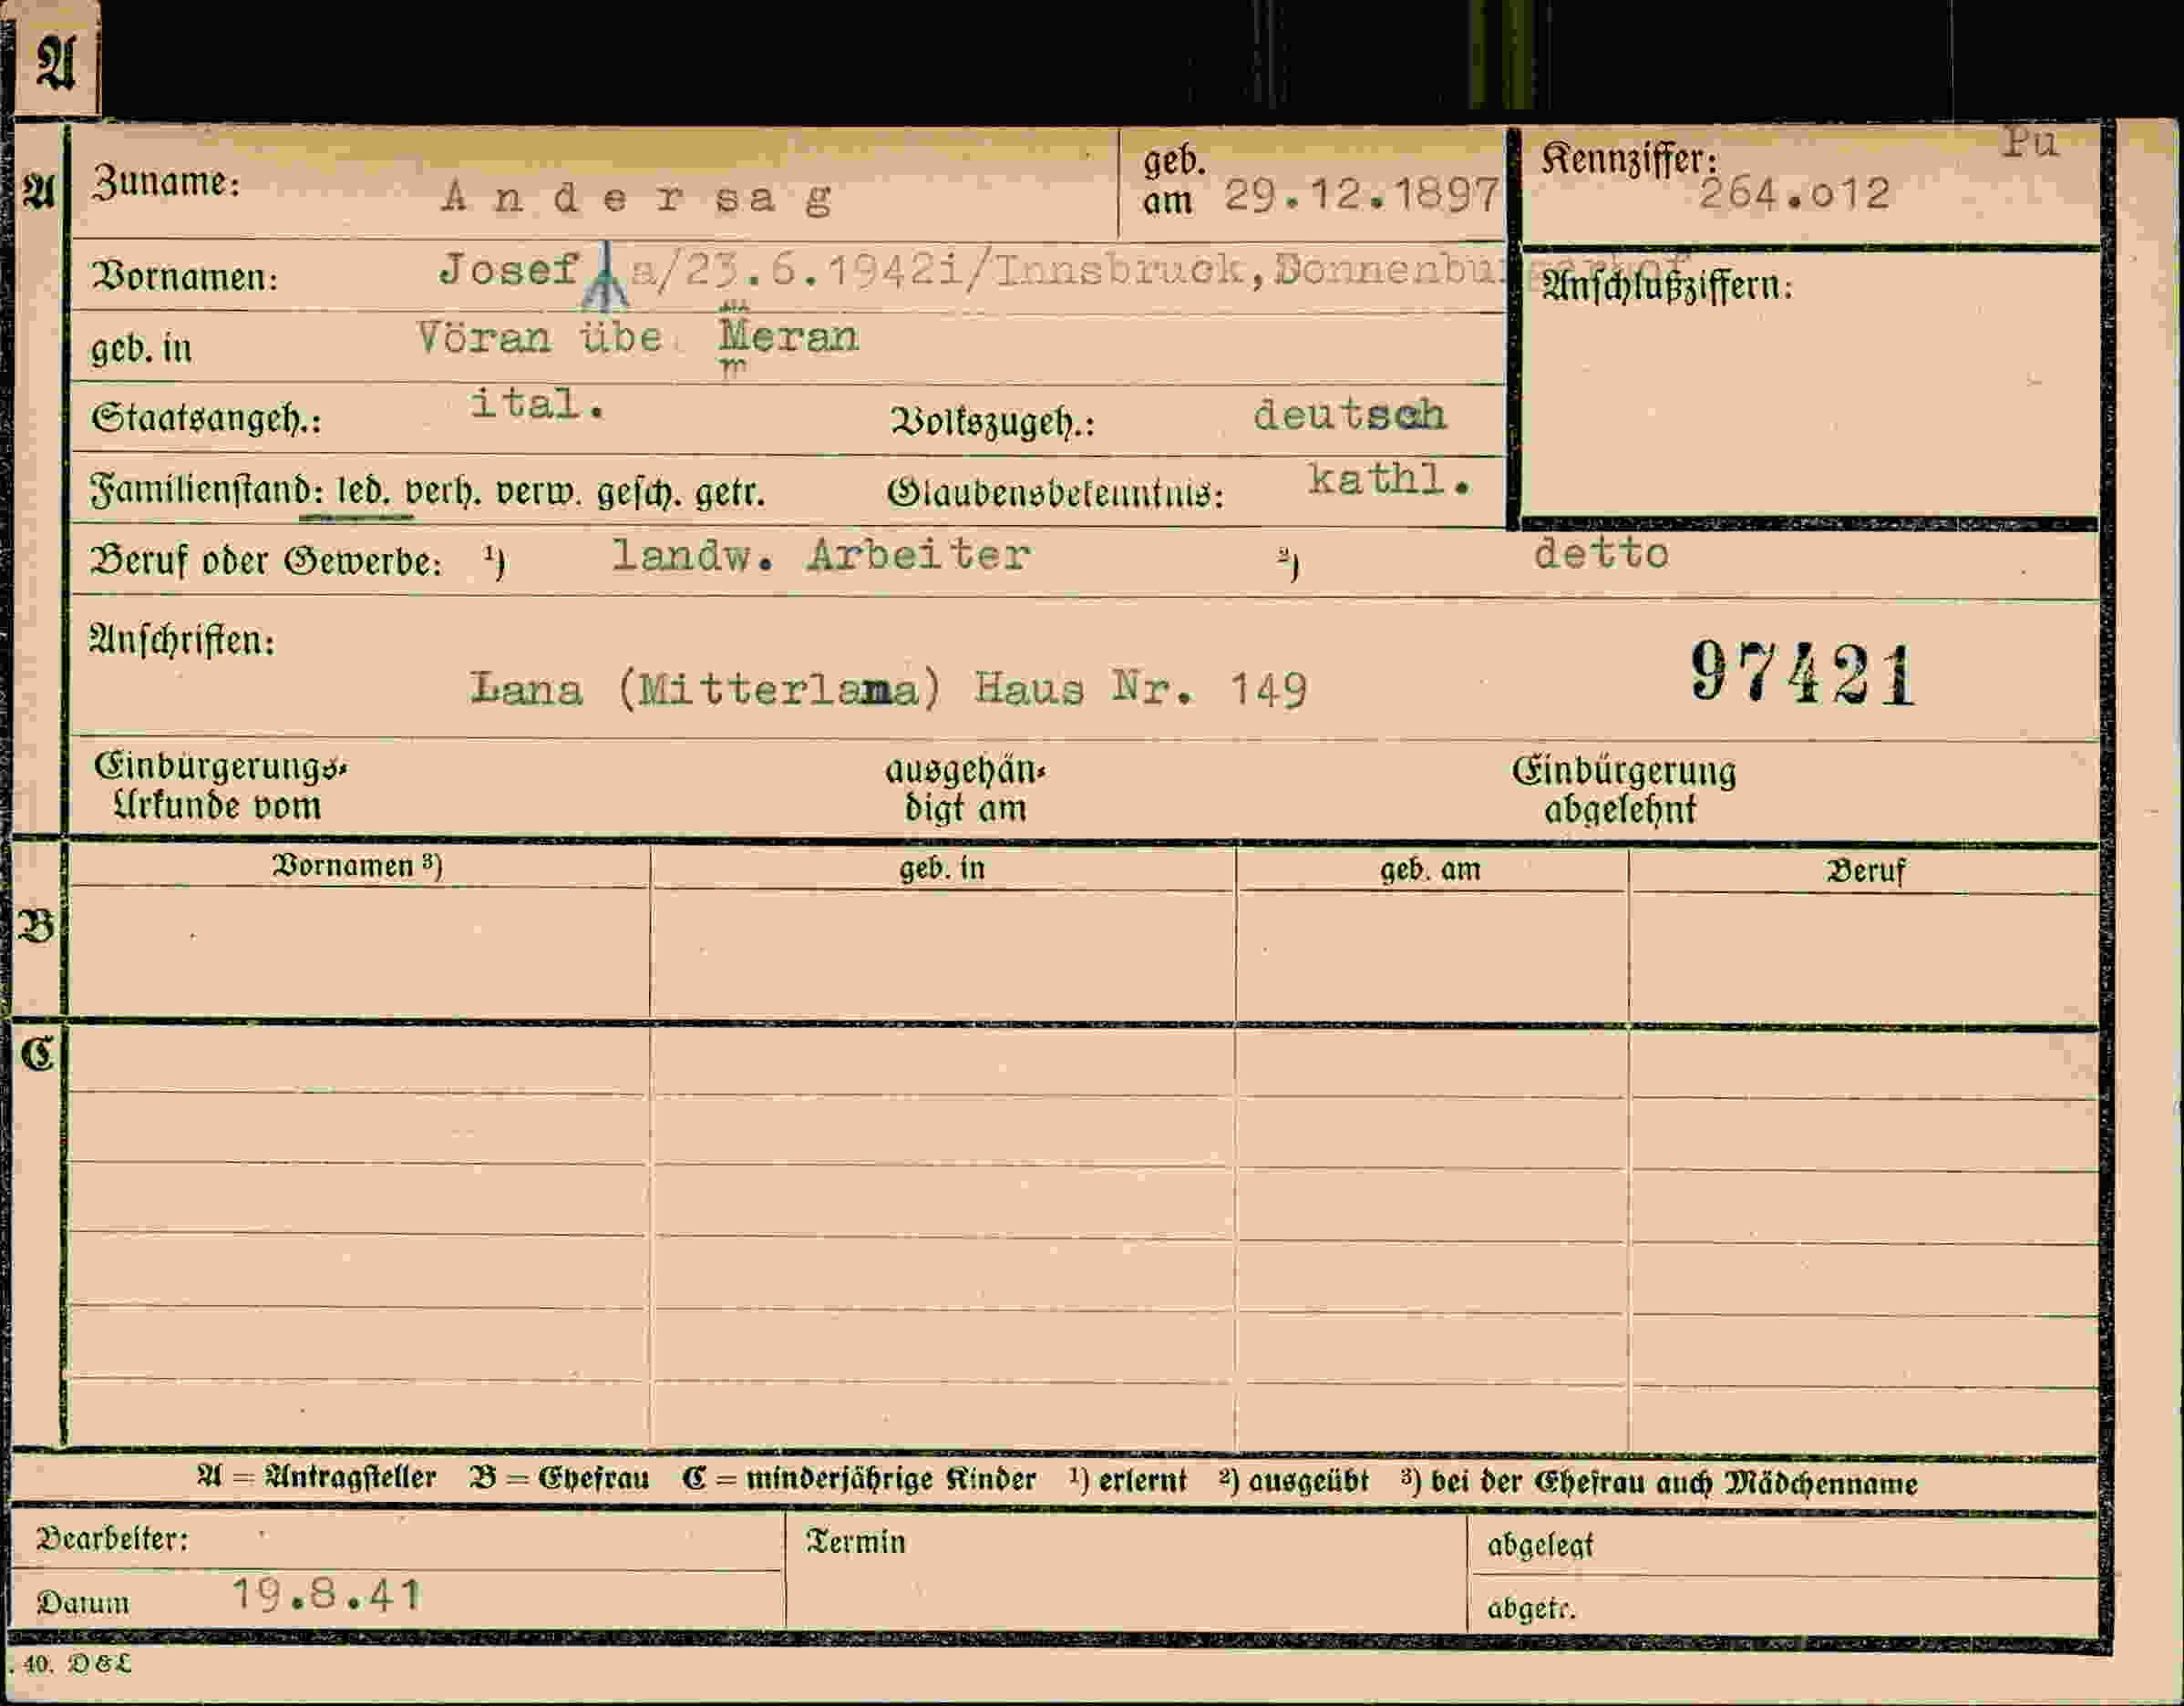 A
A
Zuname: Andersag
geb. am 29.12.1897
Kennziffer: 264.o12
Pu
Vornamen: Josef a/23.6.1942i/Innsbruck,Donnenburgerhof
Anschlußziffern:
geb. in Vöran übe Meran
m
Staatsangeh.: ital. Volkszugeh.: deutsch
Familienstand: led. verh. verw. gesch. getr. Glaubensbekenntnis: kathl.
Beruf oder Gewerbe: 1) landw. Arbeiter 2) detto
Anschriften:
Lana (Mitterlana) Haus Nr. 149
97421
Einbürgerungs-
Urkunde vom
ausgehän-
digt am
Einbürgerung
abgelehnt
Vornamen 3) geb. in geb. am Beruf
B
C
A = Antragsteller B = Ehefrau C = minderjährige Kinder 1) erlernt 2) ausgeübt 3) bei der Ehefrau auch Mädchenname
Bearbeiter: Termin abgelegt
Datum 19.8.41 abgetr.
. 40. D&L